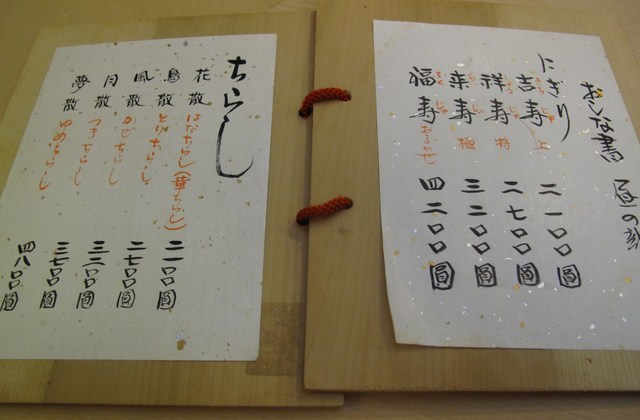 おしな書 昼の刻
にぎり
吉寿 上 二一〇〇圓
祥寿 特 二七〇〇圓
来寿 極 三二〇〇圓
福寿 おまかせ 四二〇〇圓
ちらし
花散 はなちらし(華ちらし) 二一〇〇圓
鳥散 とりちらし 二七〇〇圓
風散 かぜちらし 三三〇〇圓
月散 つきちらし 三七〇〇圓
夢散 ゆめちらし 四八〇〇圓